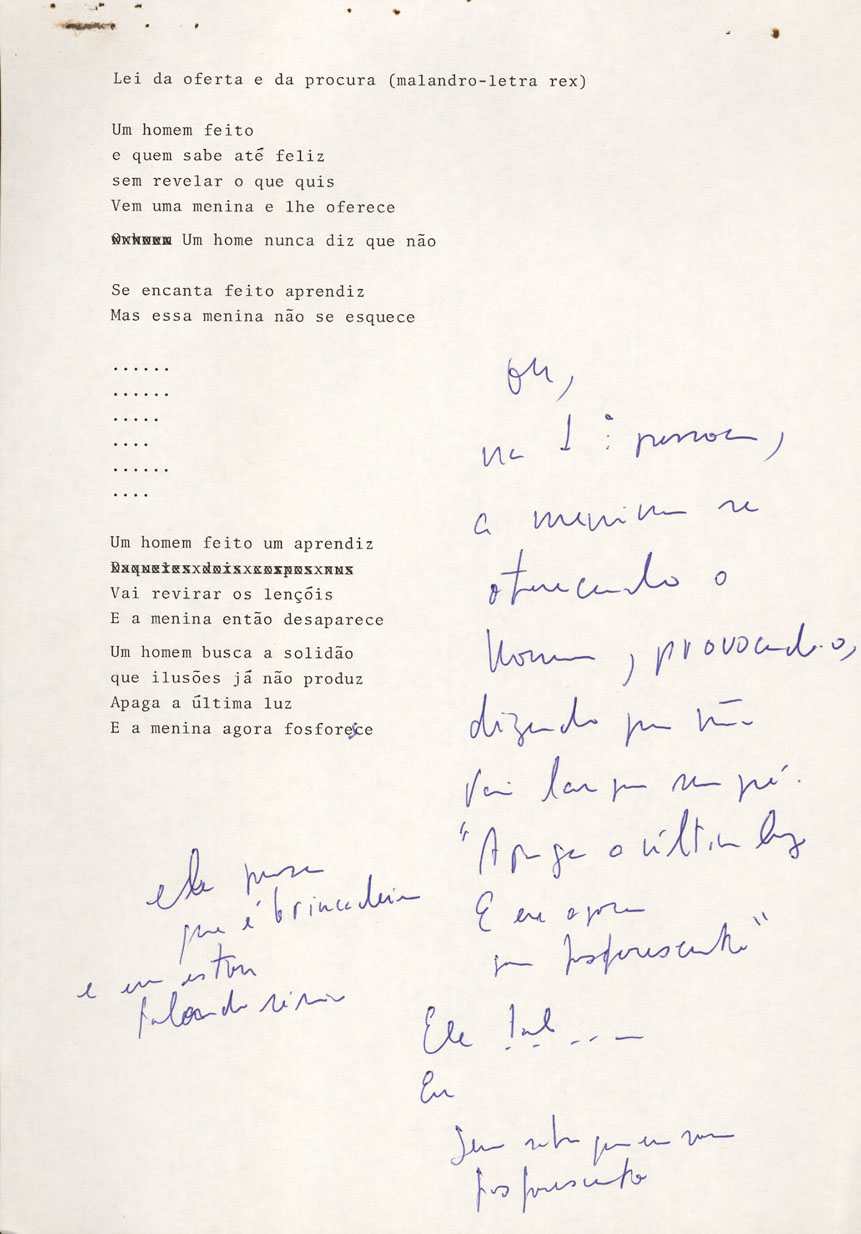 Lei da oferta e da procura (malandro-letra rex)
Um homem feito
e quem sabe até feliz
sem revelar o que quis
Vem uma menina e lhe oferece
Um home nunca diz que não
Se encanta feito aprendiz
Mas essa menina não se esquece
......
......
.....
....
......
....
Um homem feito um aprendiz
Daqueles dois corpos nus
Vai revirar os lençóis
E a menina então desaparece
Um homem busca a solidão
que ilusões já não produz
Apaga a última luz
E a menina agora fosforesce
ou,
na 1ª pessoa,
a menina se
oferecendo o
homem, provocando-o,
dizendo que não
vai largar seu pé.
"Apaga a última luz
E eu agora
sou fosforescente"
ele pensa
que é brincadeira
e eu estou
falando sério
Ele
Eu
Sem saber que eu sou
fosforescente